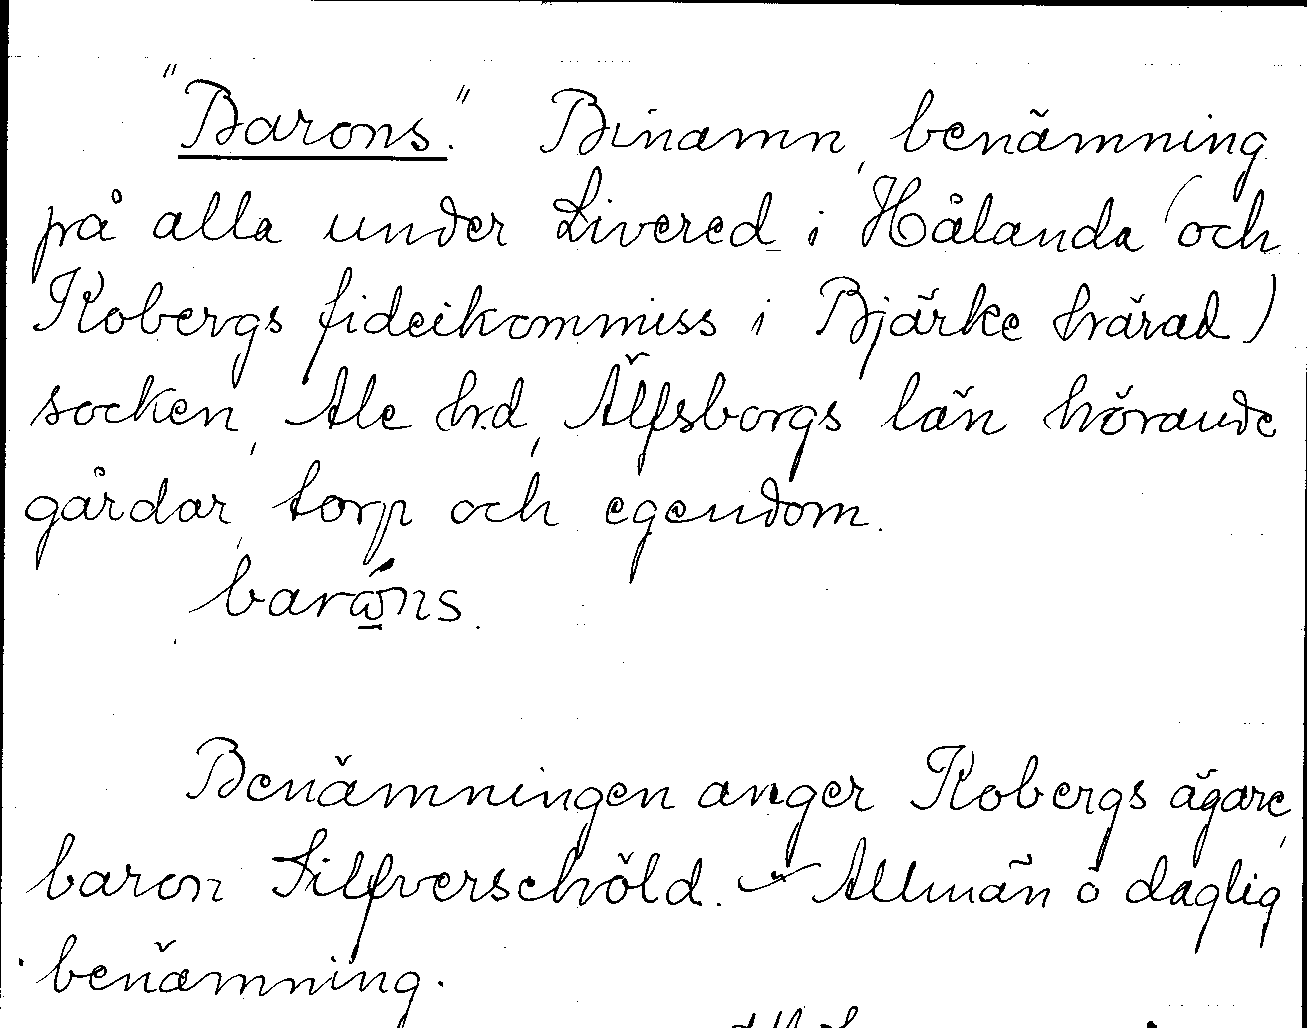 "Barons." Binamn, benämning
på alla under Livered i Hålanda (och
Kobergs fideikommiss i Bjärke härad)
socken, Ale hd, Älfsborgs län hörande
gårdar, torp och egendom.
Benämningen anger Kobergs ägare,
baron Silfverschöld. – Allmän o daglig
benämning.